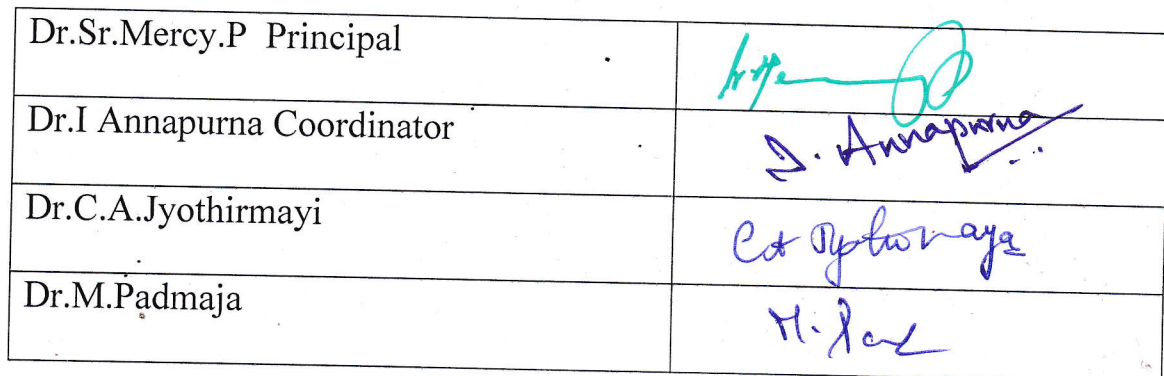 Dr.Sr.Mercy.P Principal
Dr.I Annapurna Coordinator
I. Annapurna
Dr.C.A.Jyothirmayi
Dr.M.Padmaja